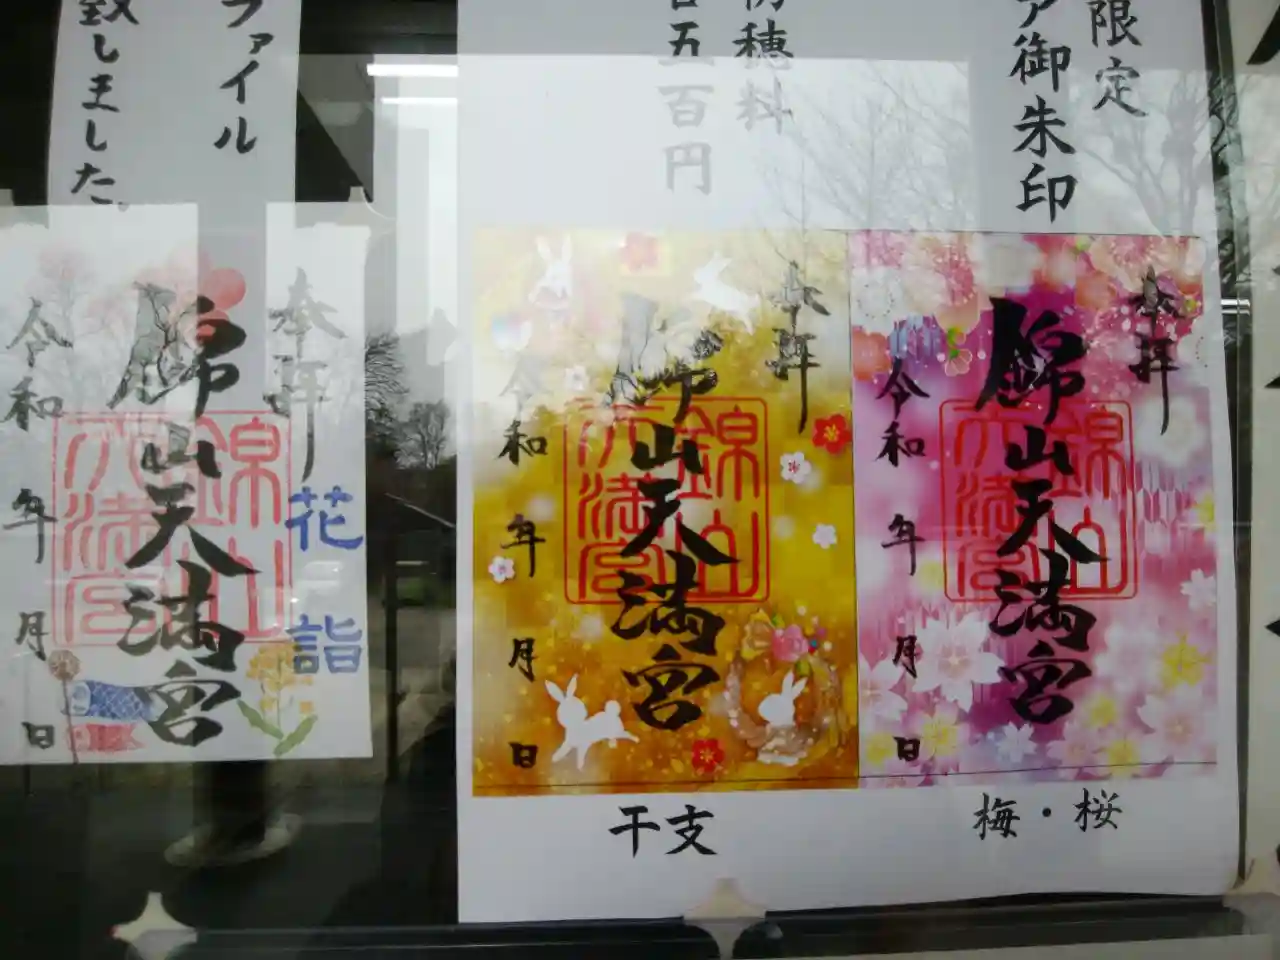 限定
ア御朱印
初穂料
五百円
奉拝
錦山天満宮
錦山天満宮
令和 年 月 日
梅・桜
奉拝
錦山天満宮
錦山天満宮
令和 年 月 日
干支
ファイル
致しました。
奉拝
花詣
錦山天満宮
錦山天満宮
令和 年 月 日